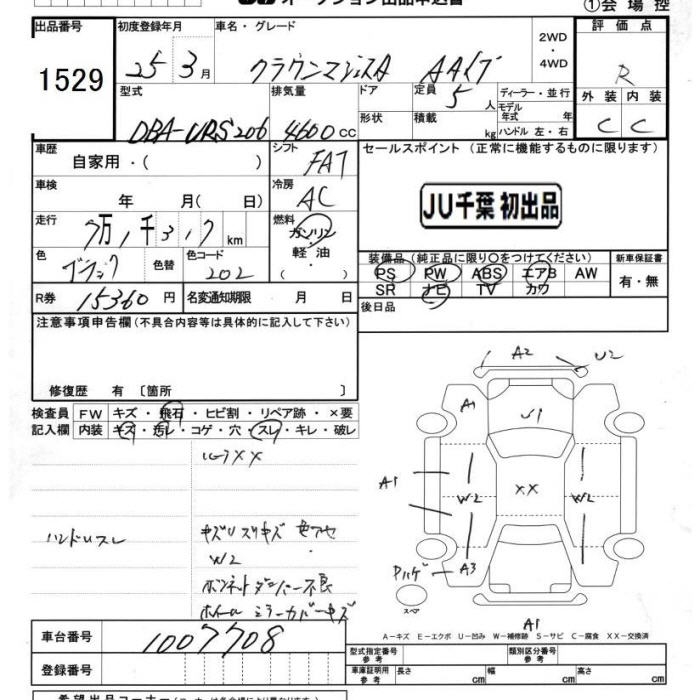 オークション出品申込書
①会場控
出品番号 初度登録年月 車名・グレード 評価点
1529 25 3月 クラウンマジェスタ Aタイプ 2WD・4WD R
型式 排気量 ドア 定員 5人 ディーラー・並行 外装 内装
DBA-URS206 4600cc 形状 積載 kg モデル年式 年 ハンドル 左・右 C C
車歴 シフト セールスポイント (正常に機能するものに限ります)
自家用・( ) FAT
車検 冷房
年 月(日) AC
JU千葉 初出品
走行 7万1千317km 燃料 ガソリン・軽油・( )
装備品(純正品に限り○をつけてください) 新車保証書
色 ブラック 色替 色コード 202
PS PW ABS エアB AW 有・無
SR ナビ TV カワ
R券 15360円 名変通知期限 月 日
後日品
注意事項申告欄(不具合内容等は具体的に記入して下さい)
修復歴 有〔箇所 〕
検査員 FW キズ・飛石・ヒビ割・リペア跡・×要
記入欄 内装 キズ・汚レ・コゲ・穴・スレ・キレ・破レ
A2 U2
A1 U1
A1 W2 XX W2
ハンドルスレ
W2
ボンネットダンパー不良
ホイール ミラーカバーキズ
Pハゲ A3
スペア
A1
A－キズ E－エクボ U－凹み W－補修跡 S－サビ C－腐食 XX－交換済
車台番号 1007708
型式指定番号 参考 類別区分番号 参考
登録番号
車庫証明用 参考 長さ cm 幅 cm 高さ cm